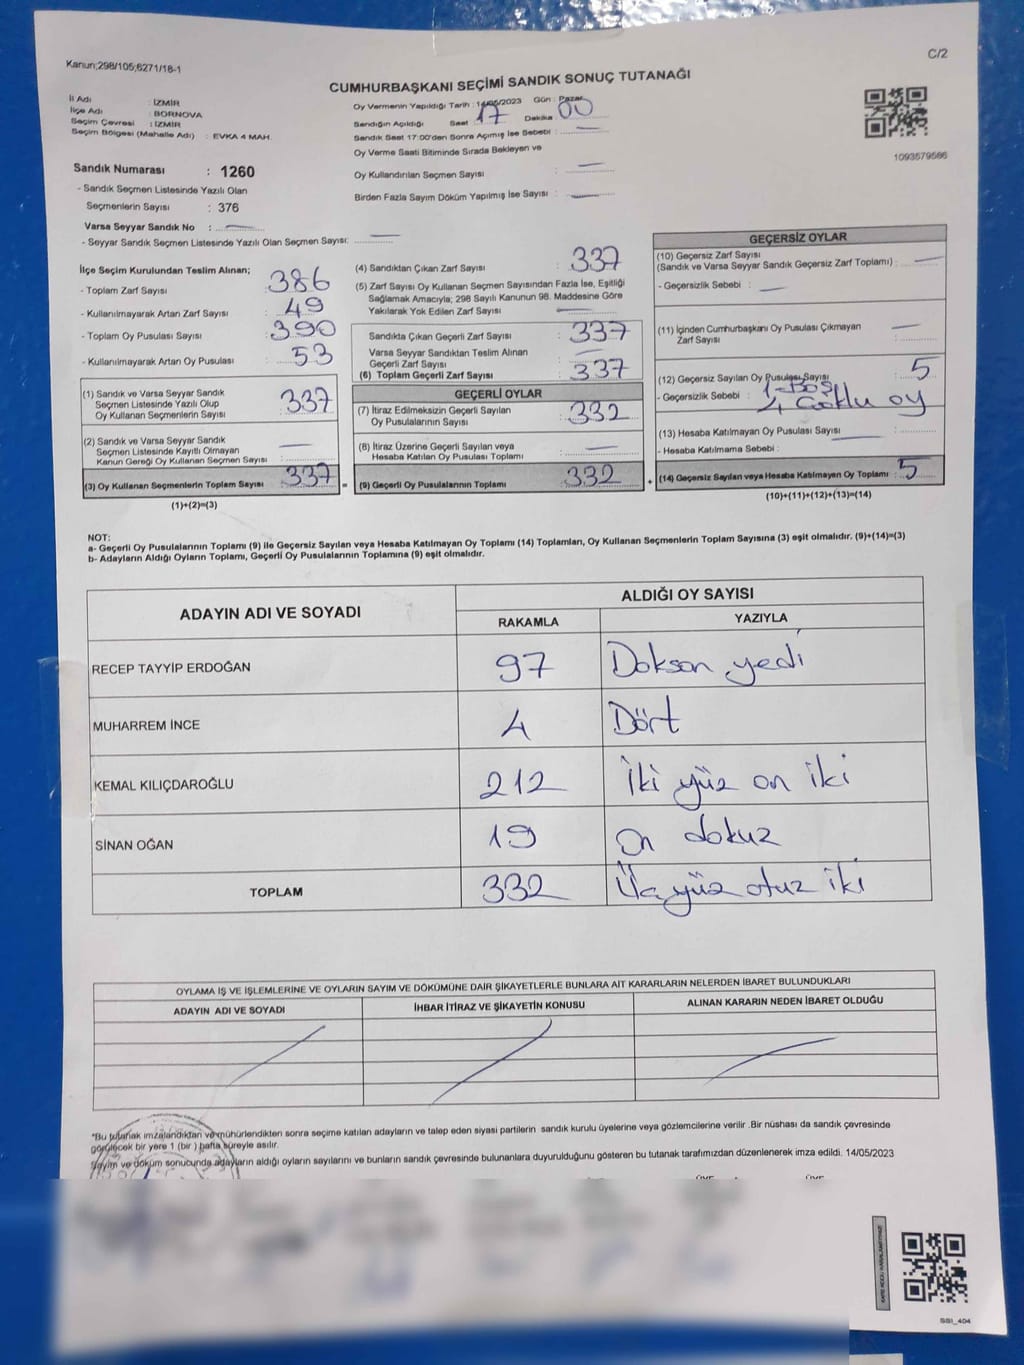 Kanun;298/105,6271/18-1
C/2
CUMHURBAŞKANI SEÇİMİ SANDIK SONUÇ TUTANAĞI
İl Adı : İZMİR
İlçe Adı : BORNOVA
Seçim Çevresi : İZMİR
Seçim Bölgesi (Mahalle Adı) : EVKA 4 MAH.
Oy Vermenin Yapıldığı Tarih : 14/05/2023 Gün : Pazar
Sandığın Açıldığı Saat : 17 Dakika : 00
Sandık Saat 17:00'den Sonra Açılmış İse Sebebi : —
Oy Verme Saati Bitiminde Sırada Bekleyen ve
Oy Kullandırılan Seçmen Sayısı : —
Birden Fazla Sayım Döküm Yapılmış İse Sayısı : —
1093579586
Sandık Numarası : 1260
- Sandık Seçmen Listesinde Yazılı Olan
Seçmenlerin Sayısı : 376
Varsa Seyyar Sandık No : —
- Seyyar Sandık Seçmen Listesinde Yazılı Olan Seçmen Sayısı: —
İlçe Seçim Kurulundan Teslim Alınan;
- Toplam Zarf Sayısı : 386
- Kullanılmayarak Artan Zarf Sayısı : 49
- Toplam Oy Pusulası Sayısı : 390
- Kullanılmayarak Artan Oy Pusulası : 53
(1) Sandık ve Varsa Seyyar Sandık
Seçmen Listesinde Yazılı Olup
Oy Kullanan Seçmenlerin Sayısı : 337
(2) Sandık ve Varsa Seyyar Sandık
Seçmen Listesinde Kayıtlı Olmayan
Kanun Gereği Oy Kullanan Seçmen Sayısı : —
(3) Oy Kullanan Seçmenlerin Toplam Sayısı : 337
(1)+(2)=(3)
(4) Sandıktan Çıkan Zarf Sayısı : 337
(5) Zarf Sayısı Oy Kullanan Seçmen Sayısından Fazla İse, Eşitliği
Sağlamak Amacıyla; 298 Sayılı Kanunun 98. Maddesine Göre
Yakılarak Yok Edilen Zarf Sayısı : —
Sandıkta Çıkan Geçerli Zarf Sayısı : 337
Varsa Seyyar Sandıktan Teslim Alınan
Geçerli Zarf Sayısı : —
(6) Toplam Geçerli Zarf Sayısı : 337
GEÇERLİ OYLAR
(7) İtiraz Edilmeksizin Geçerli Sayılan
Oy Pusulalarının Sayısı : 332
(8) İtiraz Üzerine Geçerli Sayılan veya
Hesaba Katılan Oy Pusulası Toplamı : —
= (9) Geçerli Oy Pusulalarının Toplamı : 332 +
GEÇERSİZ OYLAR
(10) Geçersiz Zarf Sayısı
(Sandık ve Varsa Seyyar Sandık Geçersiz Zarf Toplamı) : —
- Geçersizlik Sebebi : —
(11) İçinden Cumhurbaşkanı Oy Pusulası Çıkmayan
Zarf Sayısı : —
(12) Geçersiz Sayılan Oy Pusulası Sayısı : 5
- Geçersizlik Sebebi : 1-Boş
4 Çoklu oy
(13) Hesaba Katılmayan Oy Pusulası Sayısı : —
- Hesaba Katılmama Sebebi :
(14) Geçersiz Sayılan veya Hesaba Katılmayan Oy Toplamı : 5
(10)+(11)+(12)+(13)=(14)
NOT:
a- Geçerli Oy Pusulalarının Toplamı (9) ile Geçersiz Sayılan veya Hesaba Katılmayan Oy Toplamı (14) Toplamları, Oy Kullanan Seçmenlerin Toplam Sayısına (3) eşit olmalıdır. (9)+(14)=(3)
b- Adayların Aldığı Oyların Toplamı, Geçerli Oy Pusulalarının Toplamına (9) eşit olmalıdır.
ADAYIN ADI VE SOYADI ALDIĞI OY SAYISI
RAKAMLA YAZIYLA
RECEP TAYYİP ERDOĞAN 97 Doksan yedi
MUHARREM İNCE 4 Dört
KEMAL KILIÇDAROĞLU 212 İki yüz on iki
SİNAN OĞAN 19 On dokuz
TOPLAM 332 Üç yüz otuz iki
OYLAMA İŞ VE İŞLEMLERİNE VE OYLARIN SAYIM VE DÖKÜMÜNE DAİR ŞİKAYETLERLE BUNLARA AİT KARARLARIN NELERDEN İBARET BULUNDUKLARI
ADAYIN ADI VE SOYADI İHBAR İTİRAZ VE ŞİKAYETİN KONUSU ALINAN KARARIN NEDEN İBARET OLDUĞU
*Bu tutanak imzalandıktan ve mühürlendikten sonra seçime katılan adayların ve talep eden siyasi partilerin sandık kurulu üyelerine veya gözlemcilerine verilir .Bir nüshası da sandık çevresinde
görülecek bir yere 1 (bir ) hafta süreyle asılır.
Sayım ve döküm sonucunda adayların aldığı oyların sayılarını ve bunların sandık çevresinde bulunanlara duyurulduğunu gösteren bu tutanak tarafımızdan düzenlenerek imza edildi. 14/05/2023
SSI_404